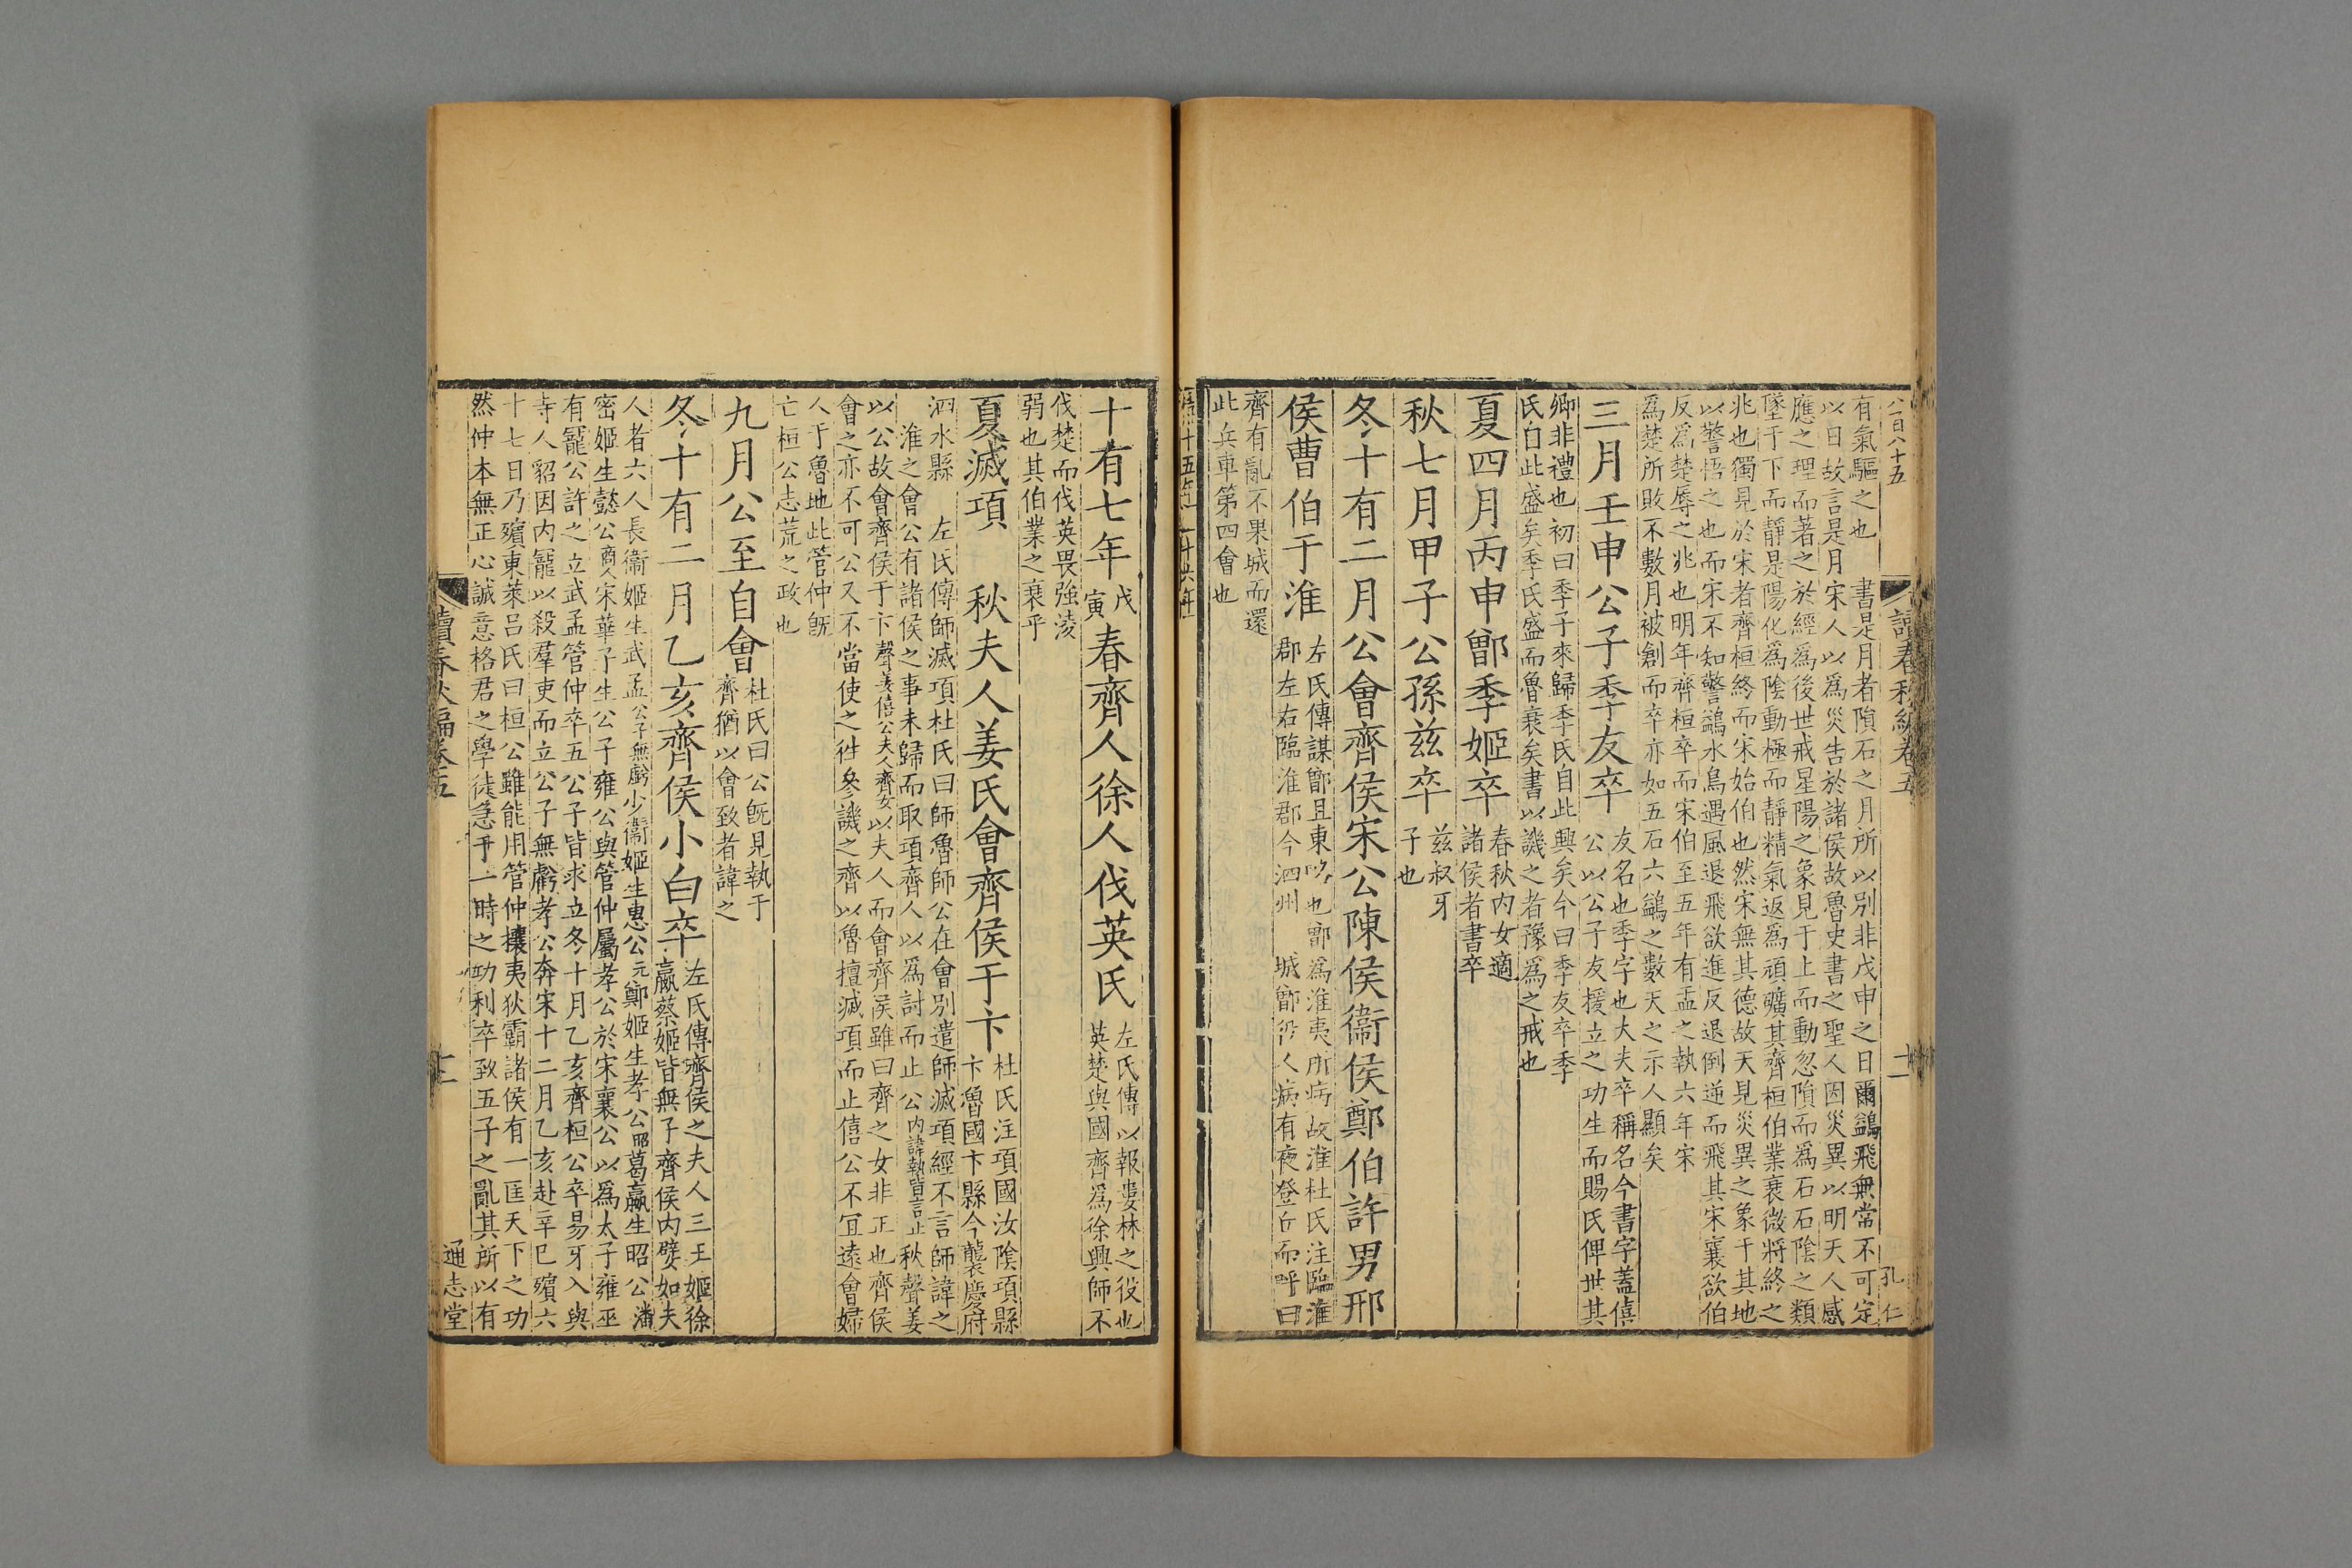 八百八十五
讀春秋編卷五
十一
孔仁
有氣驅之也　書是月者隕石之月所以別非戊申之日爾鷁飛無常不可定
以日故言是月宋人以爲災告於諸侯故魯史書之聖人因災異以明天人感
應之理而著之於經爲後世戒星陽之象見于上而動忽隕而爲石石陰之類
墜于下而靜是陽化爲陰動極而靜精氣返爲頑曠其齊桓伯業衰微將終之
兆也獨見於宋者齊桓終而宋始伯也然宋無其德故天見災異之象于其地
以警悟之也而宋不知警鷁水鳥遇風退飛欲進反退倒逆而飛其宋襄欲伯
反爲楚辱之兆也明年齊桓卒而宋伯至五年有盂之執六年宋
爲楚所敗不數月被創而卒亦如五石六鷁之數天之示人顯矣
三月壬申公子季友卒
友名也季字也大夫卒稱名今書字蓋僖
公以公子友援立之功生而賜氏俾世其
卿非禮也初曰季子來歸季氏自此興矣今曰季友卒季
氏自此盛矣季氏盛而魯衰矣書以譏之者豫爲之戒也
夏四月丙申鄫季姬卒
春秋內女適
諸侯者書卒
秋七月甲子公孫玆卒
玆叔牙
子也
冬十有二月公會齊侯宋公陳侯衞侯鄭伯許男邢
侯曹伯于淮
左氏傳謀鄫且東略也鄫爲淮夷所病故淮杜氏注臨淮
郡左右臨淮郡今泗州　城鄫役人病有夜登丘而呼曰
齊有亂不果城而還
此兵車第四會也
十有七年
戊
寅
春齊人徐人伐英氏
左氏傳以報婁林之役也
英楚與國齊爲徐興師不
伐楚而伐英畏強淩
弱也其伯業之衰乎
夏滅項　秋夫人姜氏會齊侯于卞
杜氏注項國汝陰項縣
卞魯國卞縣今襲慶府
泗水縣　左氏傳師滅項杜氏曰師魯師公在會別遣師滅項經不言師諱之
淮之會公有諸侯之事未歸而取項齊人以爲討而止公內諱執皆言止秋聲姜
以公故會齊侯于卞聲姜僖公夫人齊女以夫人而會齊侯雖曰齊之女非正也齊侯
會之亦不可公又不當使之徃參譏之齊以魯擅滅項而止僖公不冝遠會婦
人于魯地此管仲旣
亡桓公志荒之政也
九月公至自會
杜氏曰公旣見執于
齊猶以會致者諱之
冬十有二月乙亥齊侯小白卒
左氏傳齊侯之夫人三王姬徐
嬴蔡姬皆無子齊侯內嬖如夫
人者六人長衞姬生武孟公子無虧少衞姬生惠公元鄭姬生孝公昭葛嬴生昭公潘
密姬生懿公商人宋華子生公子雍公與管仲屬孝公於宋襄公以爲太子雍巫
有寵公許之立武孟管仲卒五公子皆求立冬十月乙亥齊桓公卒易牙入與
寺人貂因內寵以殺羣吏而立公子無虧孝公奔宋十二月乙亥赴辛巳殯六
十七日乃殯東萊呂氏曰桓公雖能用管仲攘夷狄霸諸侯有一匡天下之功
然仲本無正心誠意格君之學徒急乎一時之功利卒致五子之亂其所以有
讀春秋編卷五
十一
通志堂